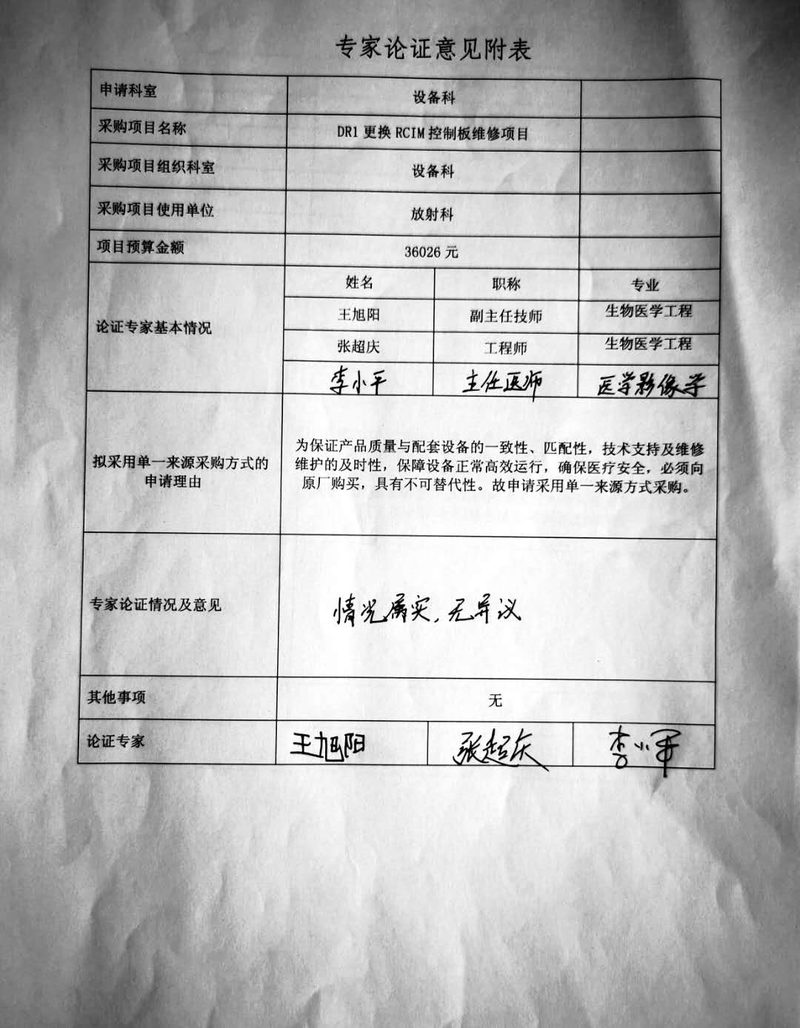 专家论证意见附表
申请科室 设备科
采购项目名称 DR1 更换 RCIM 控制板维修项目
采购项目组织科室 设备科
采购项目使用单位 放射科
项目预算金额 36026 元
论证专家基本情况
姓名 职称 专业
王旭阳 副主任技师 生物医学工程
张超庆 工程师 生物医学工程
李小平 主任医师 医学影像学
拟采用单一来源采购方式的
申请理由
为保证产品质量与配套设备的一致性、匹配性，技术支持及维修
维护的及时性，保障设备正常高效运行，确保医疗安全，必须向
原厂购买，具有不可替代性。故申请采用单一来源方式采购。
专家论证情况及意见 情况属实，无异议
其他事项 无
论证专家 王旭阳 张超庆 李小平